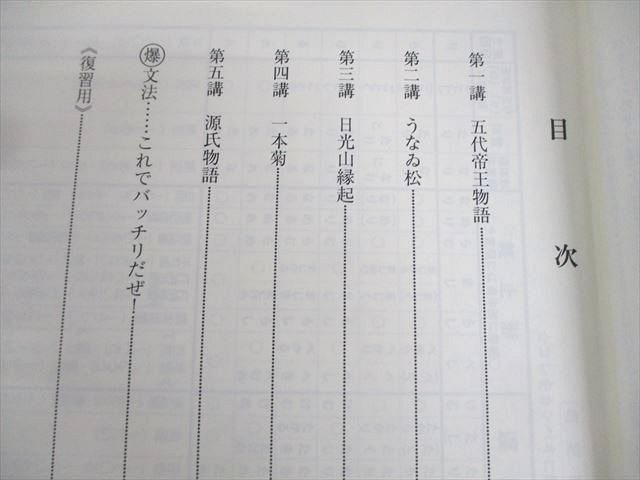 目次
第一講　五代帝王物語……………………
第二講　うなゐ松……………………
第三講　日光山縁起……………………
第四講　一本菊……………………
第五講　源氏物語……………………
㊙爆文法……これでバッチリだぜ！……………………
《復習用》……………………